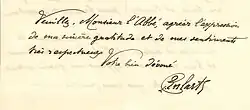 Veuillez, Monsieur l'Abbé, agréer l'expression
de ma sincère gratitude et de mes sentiments
très respectueux
Votre bien dévoué
C. Enlart